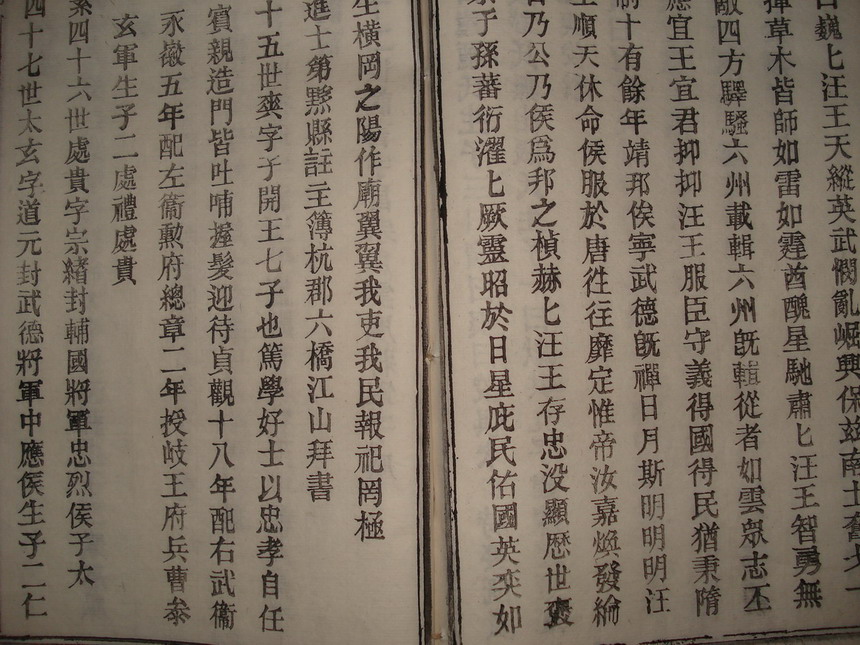 巍匕汪王天縱英武憫亂崛興保玆南土奮
揮草木皆師如雷如霆酋醜星馳肅匕汪王智勇無
敵四方驛騷六州載輯六州旣輯從者如雲眾志丕
應宜王宜君抑抑汪王服臣守義得國得民猶秉隋
制十有餘年靖邦俟寧武德旣禪日月斯明明明汪
王順天休命侯服於唐徃往靡定惟帝汝嘉煥發綸
乃公乃侯爲邦之楨赫匕汪王存忠没顯歷世褒
子孫蕃衍濯匕厥靈昭於日星庇民佑國英奕如
生橫岡之陽作廟翼翼我吏我民報祀罔極
進士第黟縣註主簿杭郡六橋江山拜書
十五世爽字子開王七子也篤學好士以忠孝自任
賓親造門皆吐哺握髮迎待貞觀十八年配右武衞
永徽五年配左衞勲府總章二年授岐王府兵曹叅
玄軍生子二處禮處貴
四十六世處貴字宗緒封輔國將軍忠烈侯子太
四十七世太玄字道元封武德將軍中應侯生子二仁